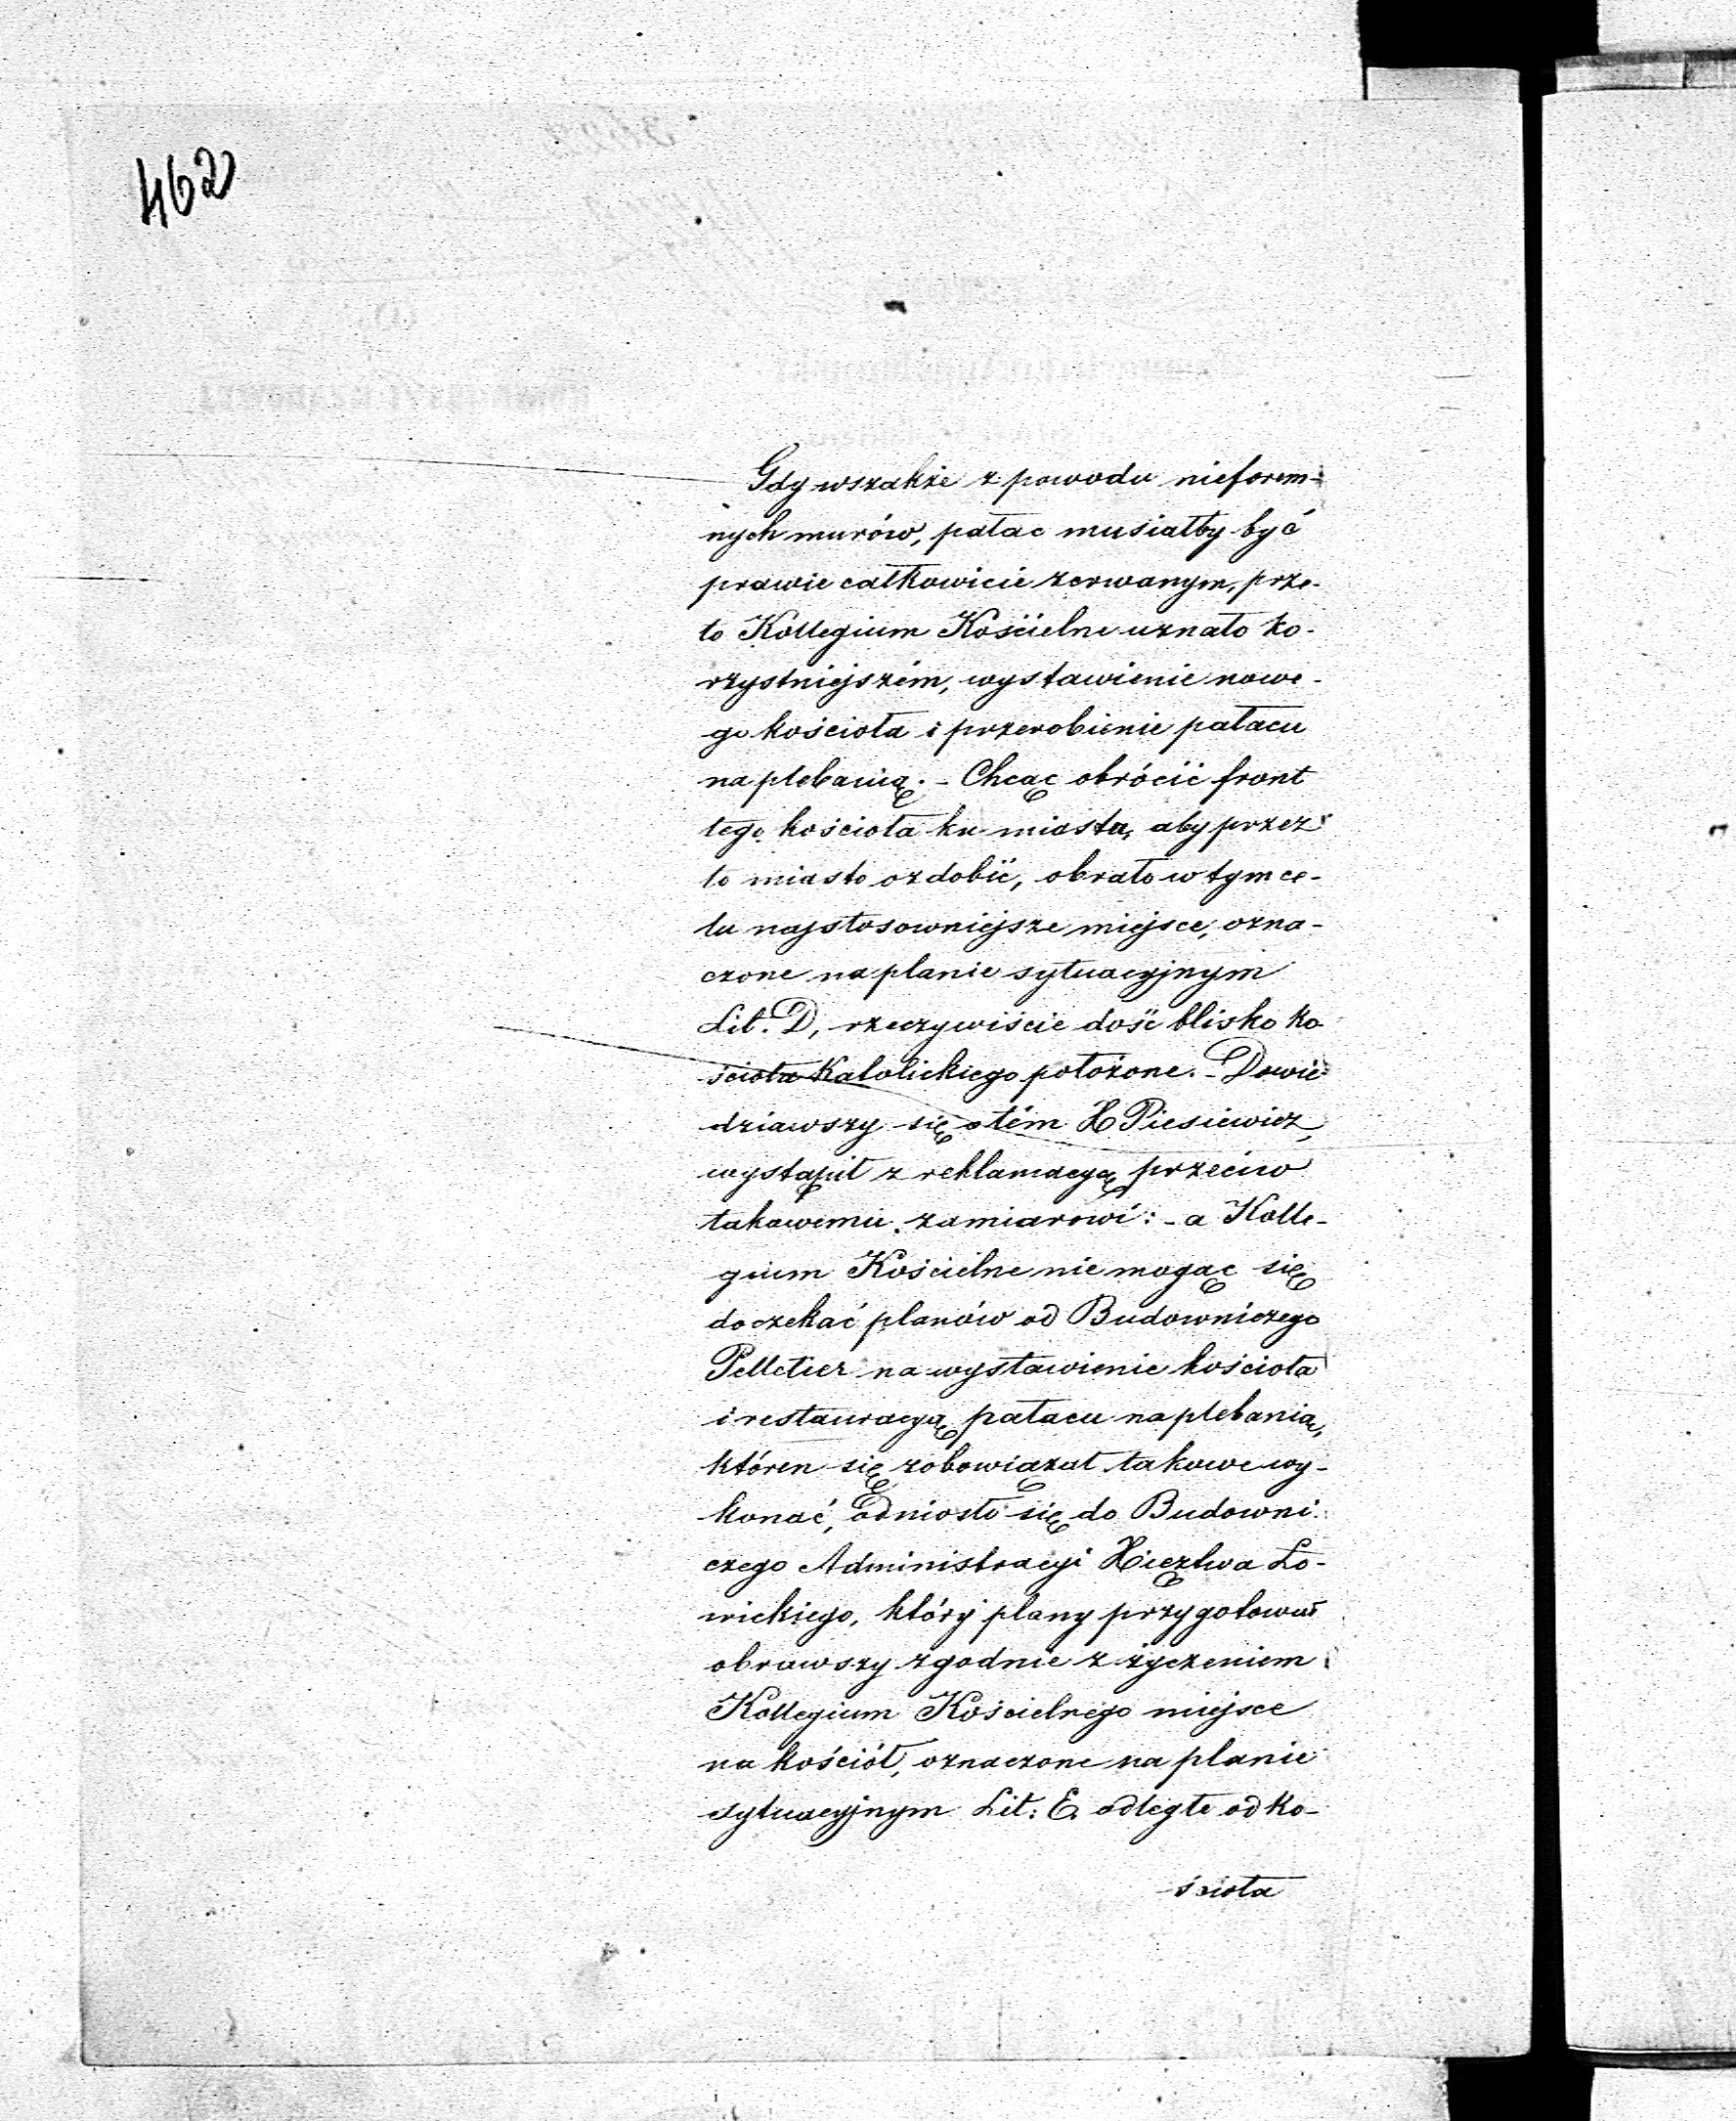 462
Gdy wszakże z powodu nieforem-
nych murów, pałac musiałby być
prawie całkowicie zerwanym, prze-
to Kollegium Kościelne uznało ko-
rzystniejszém, wystawienie nowe-
go kościoła i przerobienie pałacu
na plebanią. - Chcąc obrócić front
tego kościoła ku miastu, aby przez
to miasto ozdobić, obrało w tym ce-
lu najstosowniejsze miejsce, ozna-
czone na planie sytuacyjnym
Lit. D, rzeczywiście dość blisko ko-
ścioła Katolickiego położone. - Dowie-
dziawszy się o tém X Piesiewicz,
wystąpił z reklamacyą przeciw
takowemu zamiarowi: - a Kolle-
gium Kościelne nie mogąc się
doczekać planów od Budowniczego
Pelletier na wystawienie kościoła
i restauracyą pałacu na plebanią,
któren się zobowiązał takowe wy-
konać, odniosło się do Budowni-
czego Administracyi Xięztwa Ło-
wickiego, który plany przygotował
obrawszy zgodnie z życzeniem
Kollegium Kościelnego miejsce
na kościół, oznaczone na planie
sytuacyjnym Lit: E. odległe od ko-
ścioła